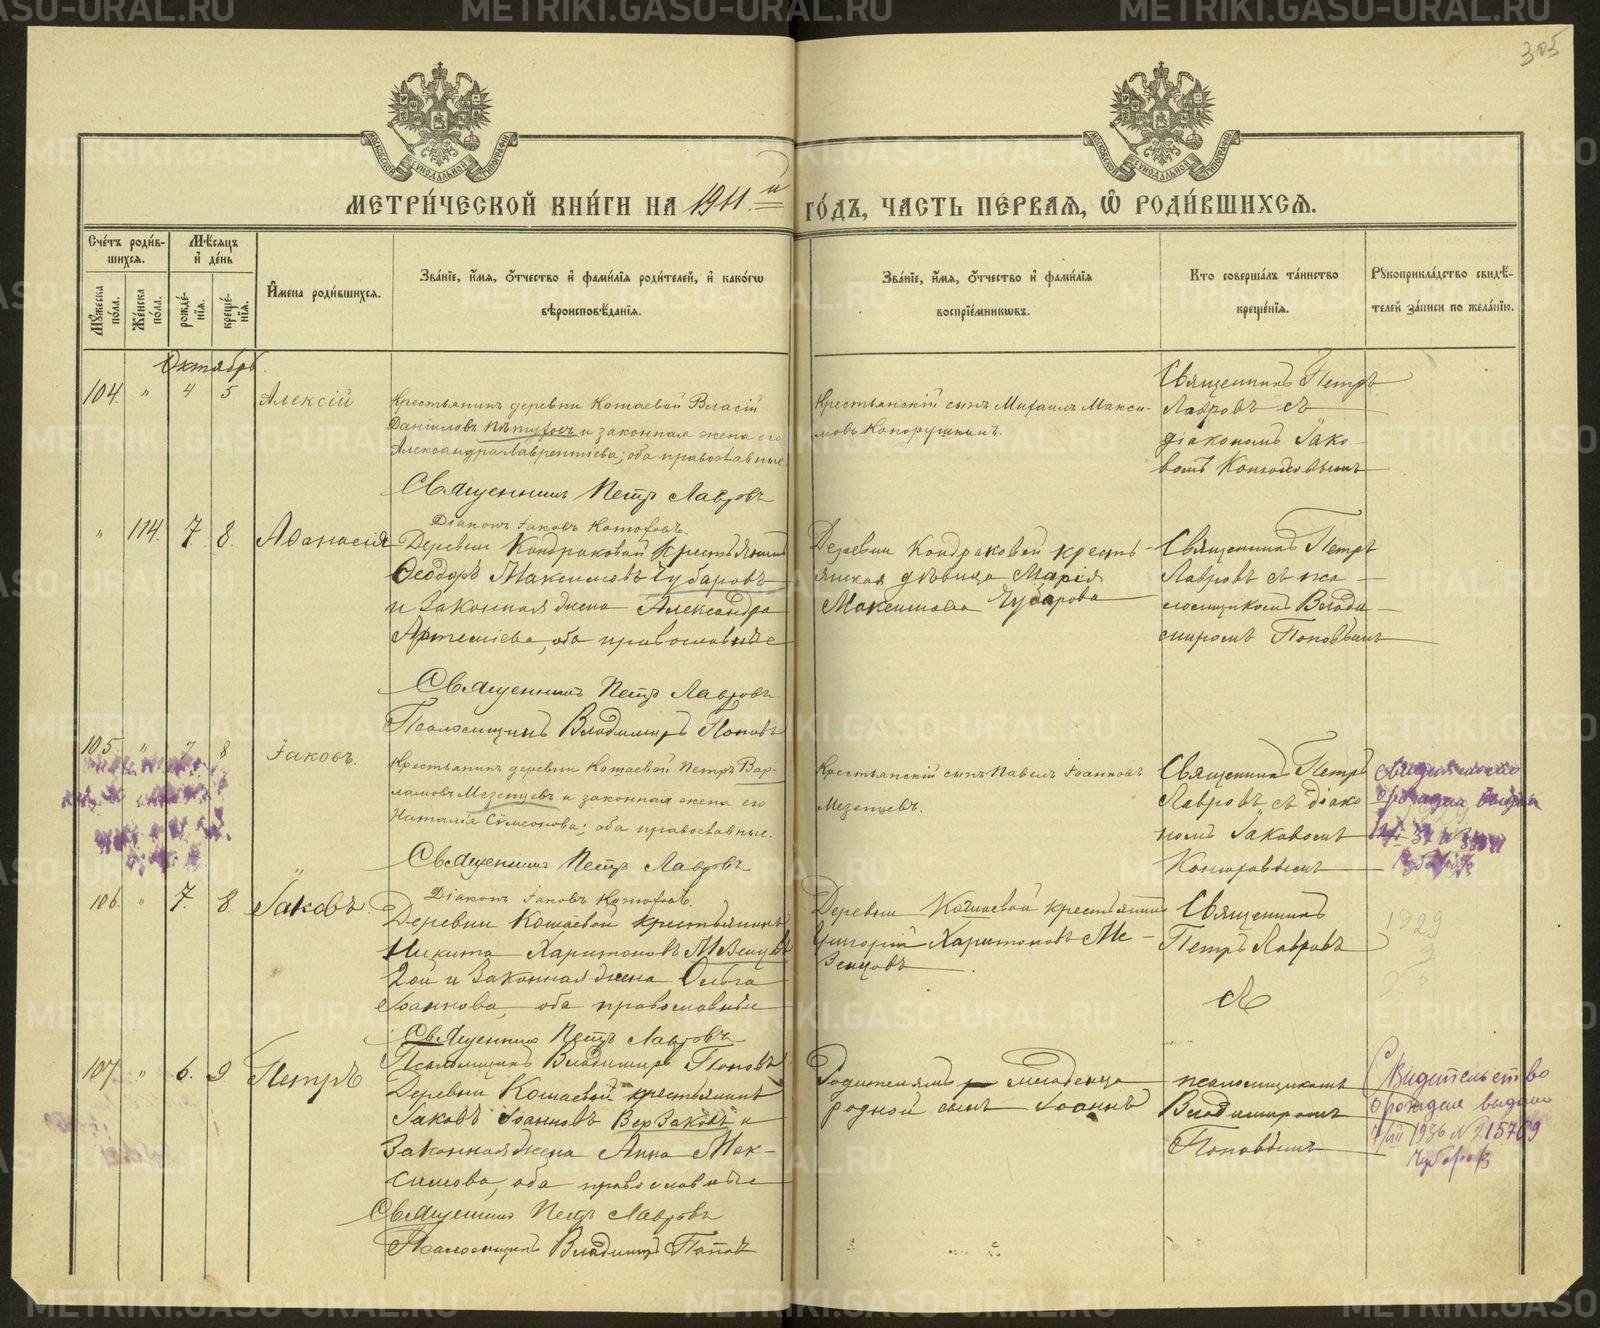 305
МЕТРИ́ЧЕСКОЙ КНИ́ГИ НА 1911й ГО́ДЪ, ЧАСТЬ ПЕ́РВАЯ, Ѡ РОДИ́ВШИХСЯ.
Сче́тъ роди́в-
шихся.
Мѣ́сяцъ
и де́нь
Мꙋ́жеска по́ла.
Же́нска по́ла.
рожде́-
нїя.
креще́-
нїя.
И́мена роди́вшихся.
Зва́нїе, и́мя, ѻ́тчество и фами́лїя роди́телей, и како́гѡ
вѣроисповѣ́данїя.
Зва́нїе, и́мя, ѻ́тчество и фами́лїя
воспрїе́мниковъ.
Кто соверша́лъ та́инство
креще́нїя.
Рꙋкоприкла́дство свидѣ́-
телей за́писи по жела́нїю.
Октябрь.
104. " 4 5 Алексій
Крестьянинъ деревни Кошаевой Власій
Даніиловъ Пѣтуховъ и законная жена его
Александра Лаврентіева; оба православные.
Священникъ Петръ Лавровъ
Діаконъ Іаковъ
Крестьянскій сынъ Михаилъ Макси-
мовъ Копорушкинъ.
Священникъ Петръ
Лавровъ съ
діакономъ Іако-
вомъ
" 114. 7 8. Аѳанасія
Деревни Кондраковой крестьянинъ
Ѳеодоръ Максимовъ Чубаровъ
и законная жена Александра
Артеміева, оба православные
Священникъ Петръ Лавровъ
Псаломщикъ Владимиръ Поповъ
Деревни Кондраковой кресть-
янская дѣвица Марія
Максимова Чубарова
Священникъ Петръ
Лавровъ съ пса-
ломщикомъ Влади-
миромъ Поповымъ
105 " 7 8 Іаковъ.
Крестьянинъ деревни Кошаевой Петръ Вар-
ламовъ Мезенцевъ и законная жена его
Наталія Сѵмеонова; оба православные.
Священникъ Петръ Лавровъ
Діаконъ Іаковъ
Крестьянскій сынъ Павелъ Іоанновъ
Мезенцевъ.
Священникъ Петръ
Лавровъ съ діако
номъ Іаковомъ
106. " 7. 8. Іаковъ.
Деревни Кошаевой крестьянинъ
Никита Харитоновъ Мезенцовъ
2ой и законная жена Ольга
Іоаннова, оба православные
Священникъ Петръ Лавровъ
Псаломщикъ Владимиръ Поповъ
Деревни Кошаевой крестьянинъ
Григорій Харитоновъ Ме-
зенцовъ
Священникъ
Петръ Лавровъ
1929
3
107. " 6. 9 Петръ
Деревни Кошаевой крестьянинъ
Іаковъ Іоанновъ Верзаковъ и
законная жена Анна Мак-
симова, оба православные
Священникъ Петръ Лавровъ
Псаломщикъ Владимиръ Поповъ
Родителямъ младенца
родной сынъ Іоаннъ
псаломщикомъ
Владимиромъ
Поповымъ
Свидетельство
о рождение выдано
1936 N 215709
Чубаров
METRIKI.GASO-URAL.RU